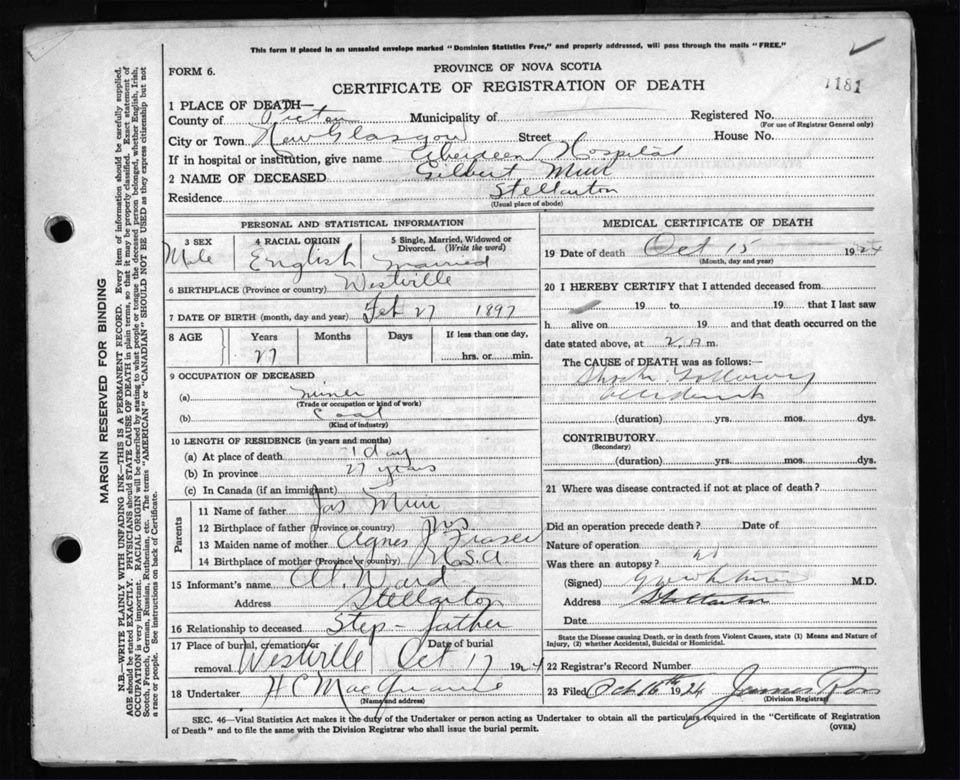 This form if placed in an unsealed envelope marked "Dominion Statistics Free," and properly addressed, will pass through the mails "FREE."
FORM 6.
PROVINCE OF NOVA SCOTIA
CERTIFICATE OF REGISTRATION OF DEATH
1181
1 PLACE OF DEATH—
County of Pictou Municipality of Registered No.
(For use of Registrar General only)
City or Town New Glasgow Street House No.
If in hospital or institution, give name Aberdeen Hospital
2 NAME OF DECEASED Gilbert Muir
Residence Stellarton
(Usual place of abode)
PERSONAL AND STATISTICAL INFORMATION
3 SEX 4 RACIAL ORIGIN 5 Single, Married, Widowed or Divorced. (Write the word)
Male English Married
6 BIRTHPLACE (Province or country) Westville
7 DATE OF BIRTH (month, day and year) Feb 27 1897
8 AGE Years Months Days If less than one day,
27 hrs. or min.
9 OCCUPATION OF DECEASED
(a) miner
(Trade or occupation or kind of work)
(b) Coal
(Kind of industry)
10 LENGTH OF RESIDENCE (in years and months)
(a) At place of death 1 day
(b) In province 27 years
(c) In Canada (if an immigrant)
Parents
11 Name of father Jas Muir
12 Birthplace of father (Province or country) N.S
13 Maiden name of mother Agnes J Fraser
14 Birthplace of mother (Province or country) U.S.A.
15 Informant's name Al. Ward
Address Stellarton
16 Relationship to deceased Step-father
17 Place of burial, cremation or removal Westville Date of burial Oct 17 1924
18 Undertaker H C MacQuarrie
(Name and address)
MEDICAL CERTIFICATE OF DEATH
19 Date of death Oct 15 1924
(Month, day and year)
20 I HEREBY CERTIFY that I attended deceased from
19 to 19 that I last saw
h alive on 19 and that death occurred on the
date stated above, at 2. A.m.
The CAUSE of DEATH was as follows:
Shock following
accident
(duration) yrs. mos. dys.
CONTRIBUTORY
(Secondary)
(duration) yrs. mos. dys.
21 Where was disease contracted if not at place of death?
Did an operation precede death? Date of
Nature of operation
Was there an autopsy? no
(Signed) M.D.
Address Stellarton
Date
State the Disease causing Death, or in death from Violent Causes, state (1) Means and Nature of Injury, (2) whether Accidental, Suicidal or Homicidal.
22 Registrar's Record Number
23 Filed Oct 16th 1924 James Ross
(Division Registrar)
SEC. 46—Vital Statistics Act makes it the duty of the Undertaker or person acting as Undertaker to obtain all the particulars required in the "Certificate of Registration
of Death" and to file the same with the Division Registrar who shall issue the burial permit. (OVER)
MARGIN RESERVED FOR BINDING
N.B.—WRITE PLAINLY WITH UNFADING INK—THIS IS A PERMANENT RECORD. Every item of information should be carefully supplied.
AGE should be stated EXACTLY. PHYSICIANS should STATE CAUSE OF DEATH in plain terms, so that it may be properly classified. Exact statement of
OCCUPATION is very important. RACIAL ORIGIN will be described by stating to what people or tongue the deceased person belonged, whether English, Irish,
Scotch, French, German, Russian, Ruthenian, etc. The terms "AMERICAN" or "CANADIAN" SHOULD NOT BE USED as they express citizenship but not
a race or people. See instructions on back of Certificate.